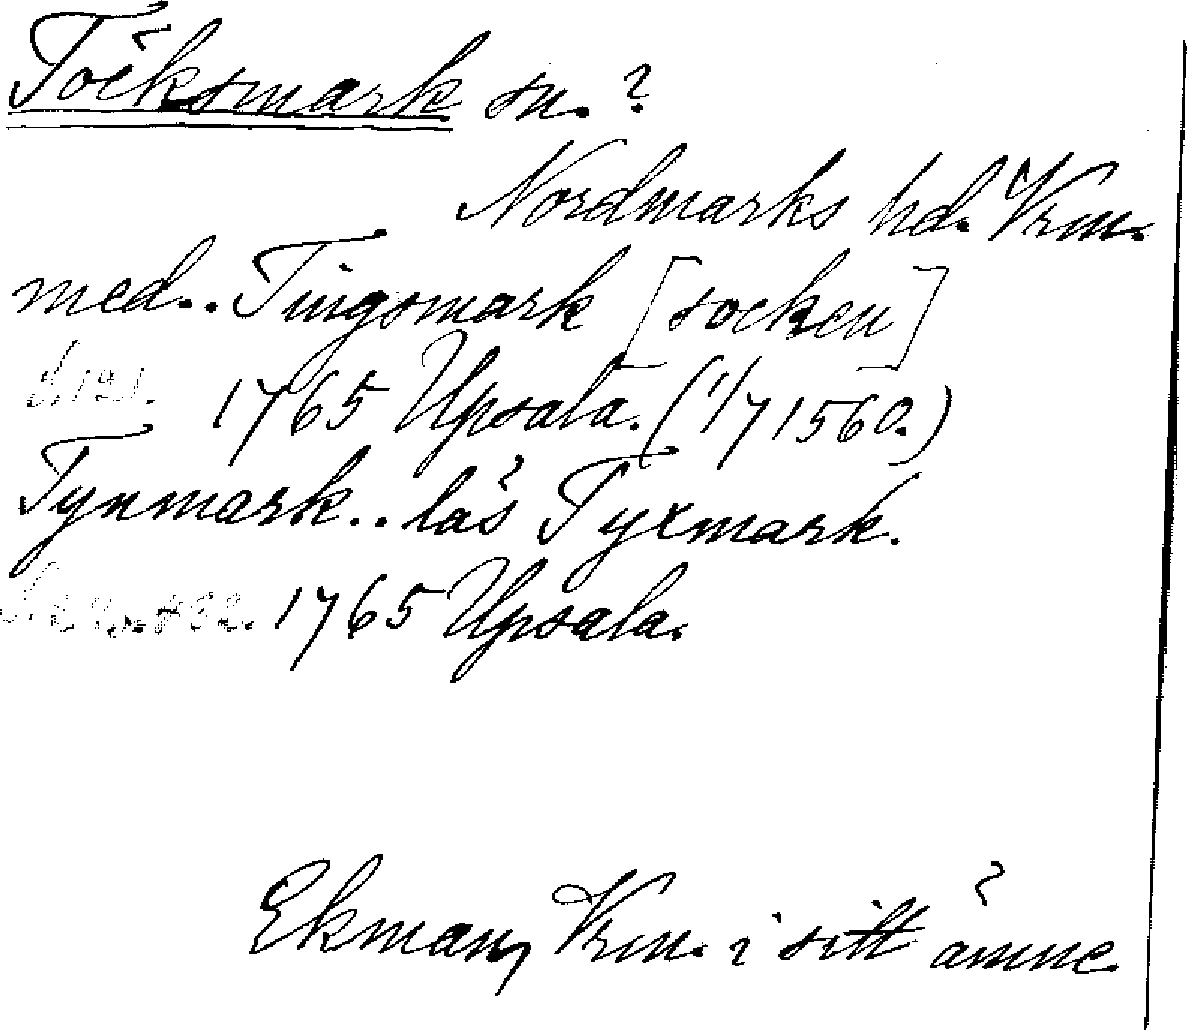 Töcksmark sn. ?
Nordmarks hd. Vrm.
med.. Tingsmark [socken]
s. 121. 1765 Upsala. (1/7 1560.)
Tynmark.. läs Tyxmark.
1765 Upsala.
Ekman, Vrm. i sitt ämne